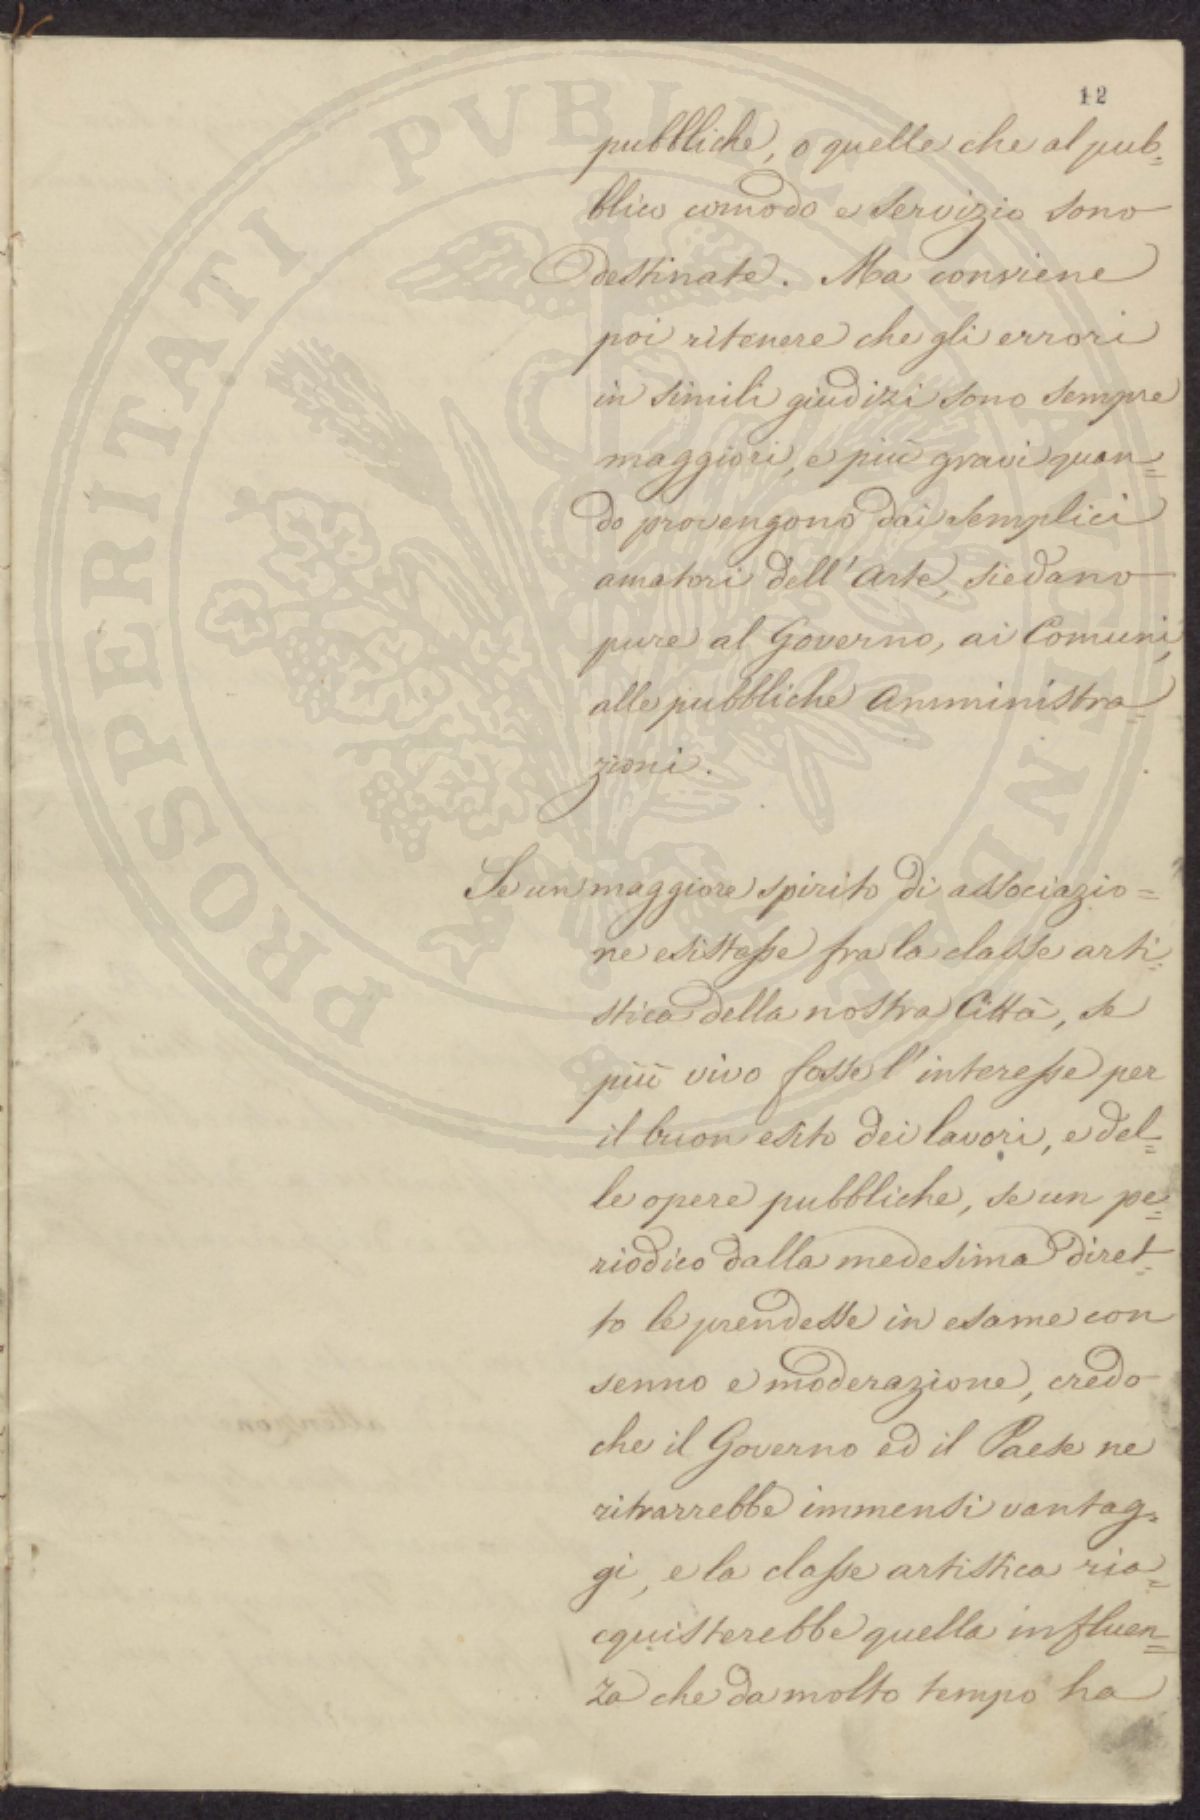 12
pubbliche, o quelle che al pub=
blico comodo e servizio sono
destinate. Ma conviene
poi ritenere che gli errori
in simili giudizi sono sempre
maggiori, e più gravi quan=
do provengono dai semplici
amatori dell'Arte, siedano
pure al Governo, ai Comuni,
alle pubbliche Amministra=
zioni.
Se un maggiore spirito di associazio=
ne esistesse fra la classe arti=
stica della nostra Città, se
più vivo fosse l'interesse per
il buon esito dei lavori, e del=
le opere pubbliche, se un pe=
riodico dalla medesima diret=
to le prendesse in esame con
senno e moderazione, credo
che il Governo ed il Paese ne
ritrarrebbe immensi vantag=
gi, e la classe artistica ria=
cquisterebbe quella influen=
za che da molto tempo ha
PROSPERITATI PVBLICAE AVGENDAE